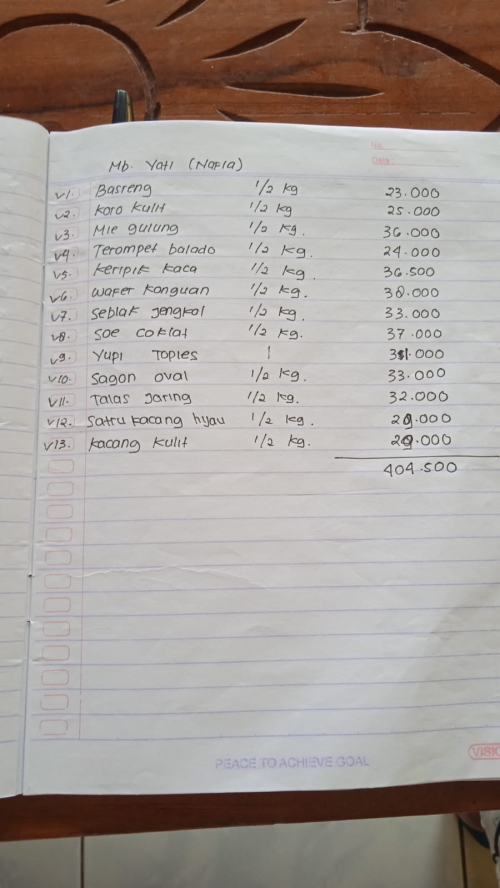 No.
Date :
Mb. Yati (Nafla)
v1. Basreng 1/2 kg 23.000
v2. Koro kulit 1/2 kg 25.000
v3. Mie gulung 1/2 kg. 36.000
v4. Terompet balado 1/2 kg. 24.000
v5. Keripik kaca 1/2 kg. 36.500
v6. Wafer konguan 1/2 kg. 38.000
v7. Seblak jengkol 1/2 kg. 33.000
v8. Soe coklat 1/2 kg. 37.000
v9. Yupi Toples 1 31.000
v10. Sagon oval 1/2 kg. 33.000
v11. Talas Jaring 1/2 kg. 32.000
v12. Satru kacang hijau 1/2 kg. 28.000
v13. Kacang kulit 1/2 kg. 28.000
404.500
PEACE TO ACHIEVE GOAL